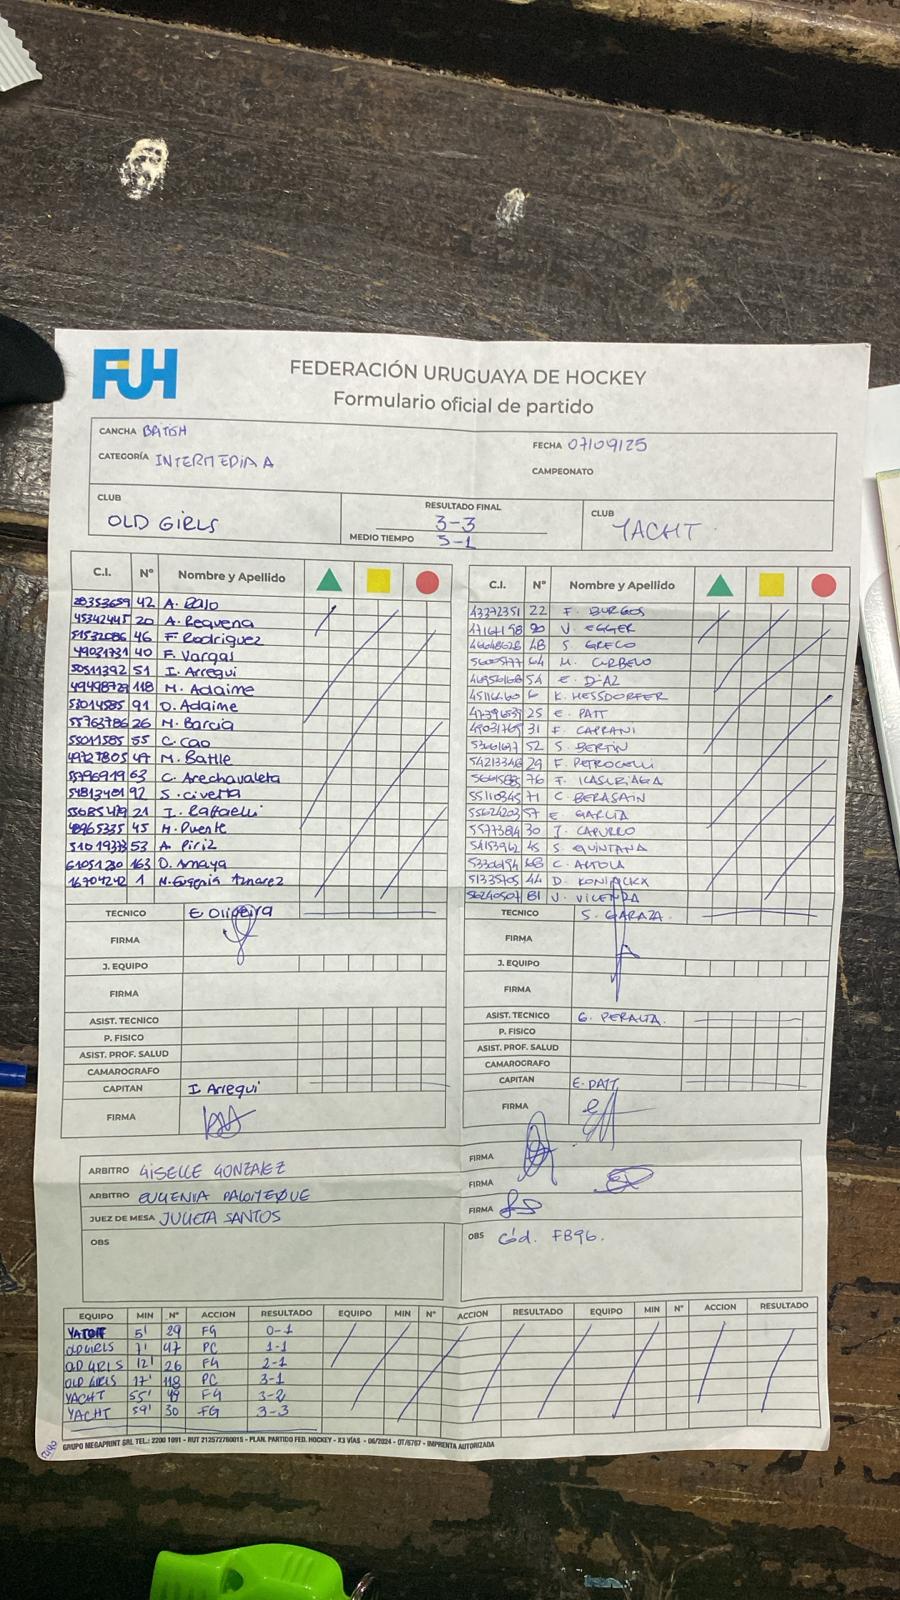 FUH
FEDERACIÓN URUGUAYA DE HOCKEY
Formulario oficial de partido
CANCHA BRITISH
FECHA 07/09/25
CATEGORÍA INTERMEDIA A
CAMPEONATO
CLUB
OLD GIRLS
RESULTADO FINAL
3-3
MEDIO TIEMPO 3-1
CLUB
YACHT
C.I. Nº Nombre y Apellido
42 A.
45342445 20 A. Requena
46 F. Rodriguez
49031731 40 F. Vargas
50511392 51 I. Arregui
118 M. Adaime
53014585 91 D. Adaime
55763786 26 M. Barcia
55011585 55 C. Cao
47 M. Battle
63 C. Arechavaleta
92 S. Civetta
21 I. Raffaelli
45 M. Puente
53 A. Piriz
163 D. Amaya
16704242 1 M. Eugenia Aznarez
TECNICO E Oliveira
FIRMA
J. EQUIPO
FIRMA
ASIST. TECNICO
P. FISICO
ASIST. PROF. SALUD
CAMAROGRAFO
CAPITAN I. Arregui
FIRMA
C.I. Nº Nombre y Apellido
43272351 22 F. BURGOS
V. EGGER
48 S. GRECO
64 M. CURBELO
54 E. DIAZ
6 K. HESSDORFER
25 E. PATT
31 F. CAPRANI
52 S. BERTIN
54213346 29 F. PETROCELLI
76 F.
55110345 71 C. BERASAIN
55624203 57 E GARCIA
30 J. CAPURRO
54153962 45 S. QUINTANA
68 C. ALTOLA
51335705 44 D.
56240507 81 V.
TECNICO S. GARAZA.
FIRMA
J. EQUIPO
FIRMA
ASIST. TECNICO G. PERALTA.
P. FISICO
ASIST. PROF. SALUD
CAMAROGRAFO
CAPITAN E. PATT
FIRMA
ARBITRO GISELLE GONZALEZ
FIRMA
ARBITRO EUGENIA
FIRMA
JUEZ DE MESA JULIETA SANTOS
FIRMA
OBS
OBS Cód. FB96.
EQUIPO MIN Nº ACCION RESULTADO EQUIPO MIN Nº ACCION RESULTADO EQUIPO MIN Nº ACCION RESULTADO
YACHT 5' 29 FG 0-1
OLD GIRLS 7' 47 PC 1-1
OLD GIRLS 12' 26 FG 2-1
OLD GIRLS 17' 118 PC 3-1
YACHT 55' 49 FG 3-2
YACHT 59' 30 FG 3-3
GRUPO MEGAPRINT SRL TEL.: 2200 1091 - RUT 212572760015 - PLAN. PARTIDO FED. HOCKEY - X3 VÍAS - 06/2024 - OT/6767 - IMPRENTA AUTORIZADA